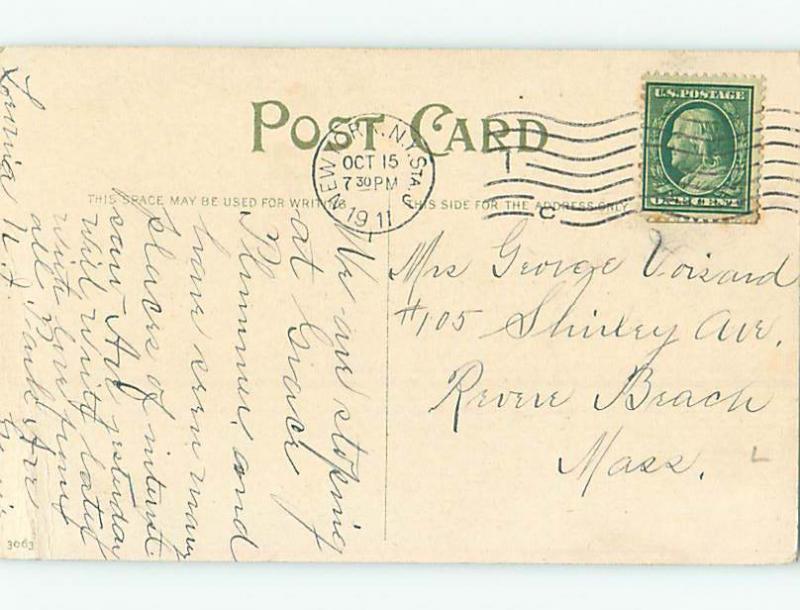 POST CARD
NEW YORK, N.Y. STA. G
OCT 15
7 30 PM
1911
U.S. POSTAGE
ONE CENT
THIS SPACE MAY BE USED FOR WRITING
THIS SIDE FOR THE ADDRESS ONLY
C
Mrs George Voisard
#105 Shirley Ave.
Revere Beach
Mass.
We are stoping
at Grace
Plummer, and
have seen many
places of interest
saw Art yesterday
will write later
with love from
all Park Ave
3063